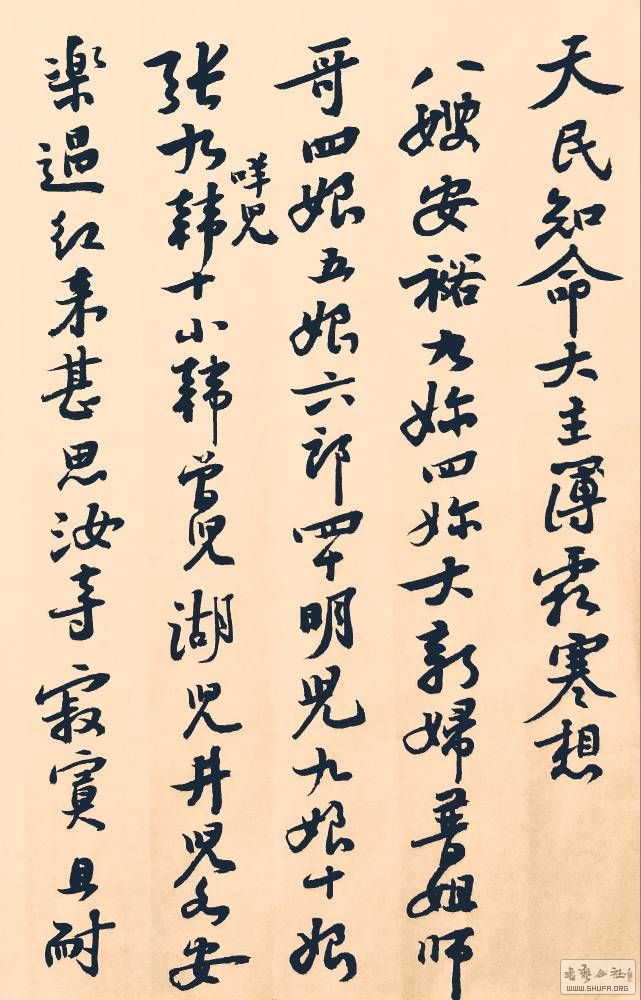 天民知命大主簿霜寒想
八嫂安裕九妳四妳大新婦普姐師
哥四娘五娘六郎四十明兒九娘十娘
咩兒
張九韓十小韓曾兒湖兒井兒各安
樂過江来甚思汝等寂寞且耐
書藝公社
WWW.SHUFA.ORG